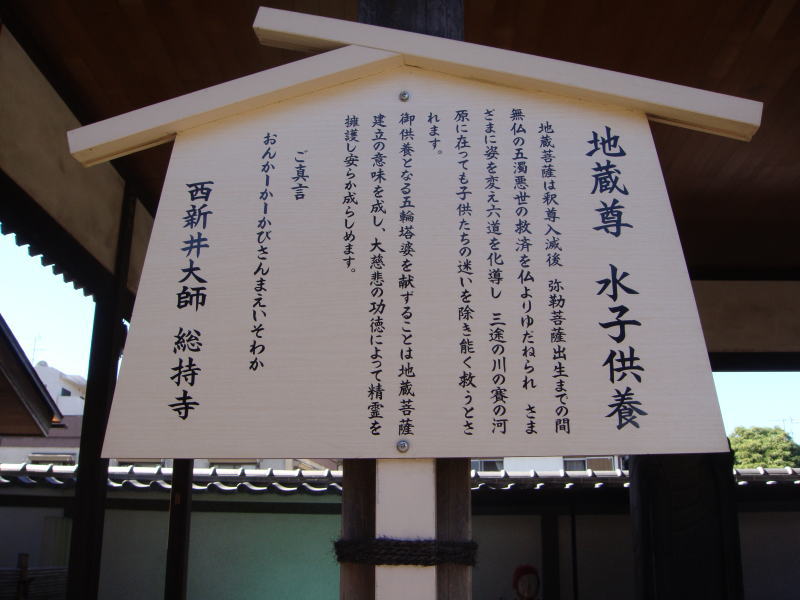 地蔵尊 水子供養
地蔵菩薩は釈尊入滅後 弥勒菩薩出生までの間
無仏の五濁悪世の救済を仏よりゆだねられ さま
ざまに姿を変え六道を化導し 三途の川の賽の河
原に在っても子供たちの迷いを除き能く救うとさ
れます。
御供養となる五輪塔婆を献ずることは地蔵菩薩
建立の意味を成し、大慈悲の功徳によって精霊を
擁護し安らか成らしめます。
ご真言
おんかーかーかびさんまえいそわか
西新井大師 総持寺